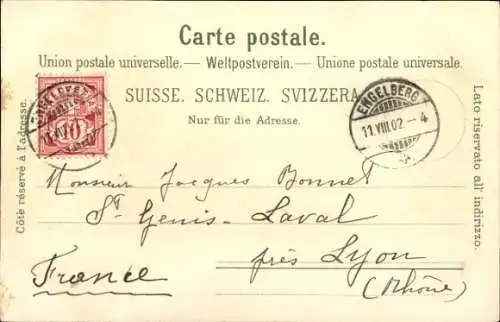 Carte postale.
Union postale universelle. — Weltpostverein. — Unione postale universale.
SUISSE. SCHWEIZ. SVIZZERA
Nur für die Adresse.
Côté réservé à l'adresse.
Lato riservato all' indirizzo.
10
ENGELBERG
11.VIII.02 – 4
Monsieur Jacques Bonnet
St Genis-Laval
près Lyon
(Rhône)
France